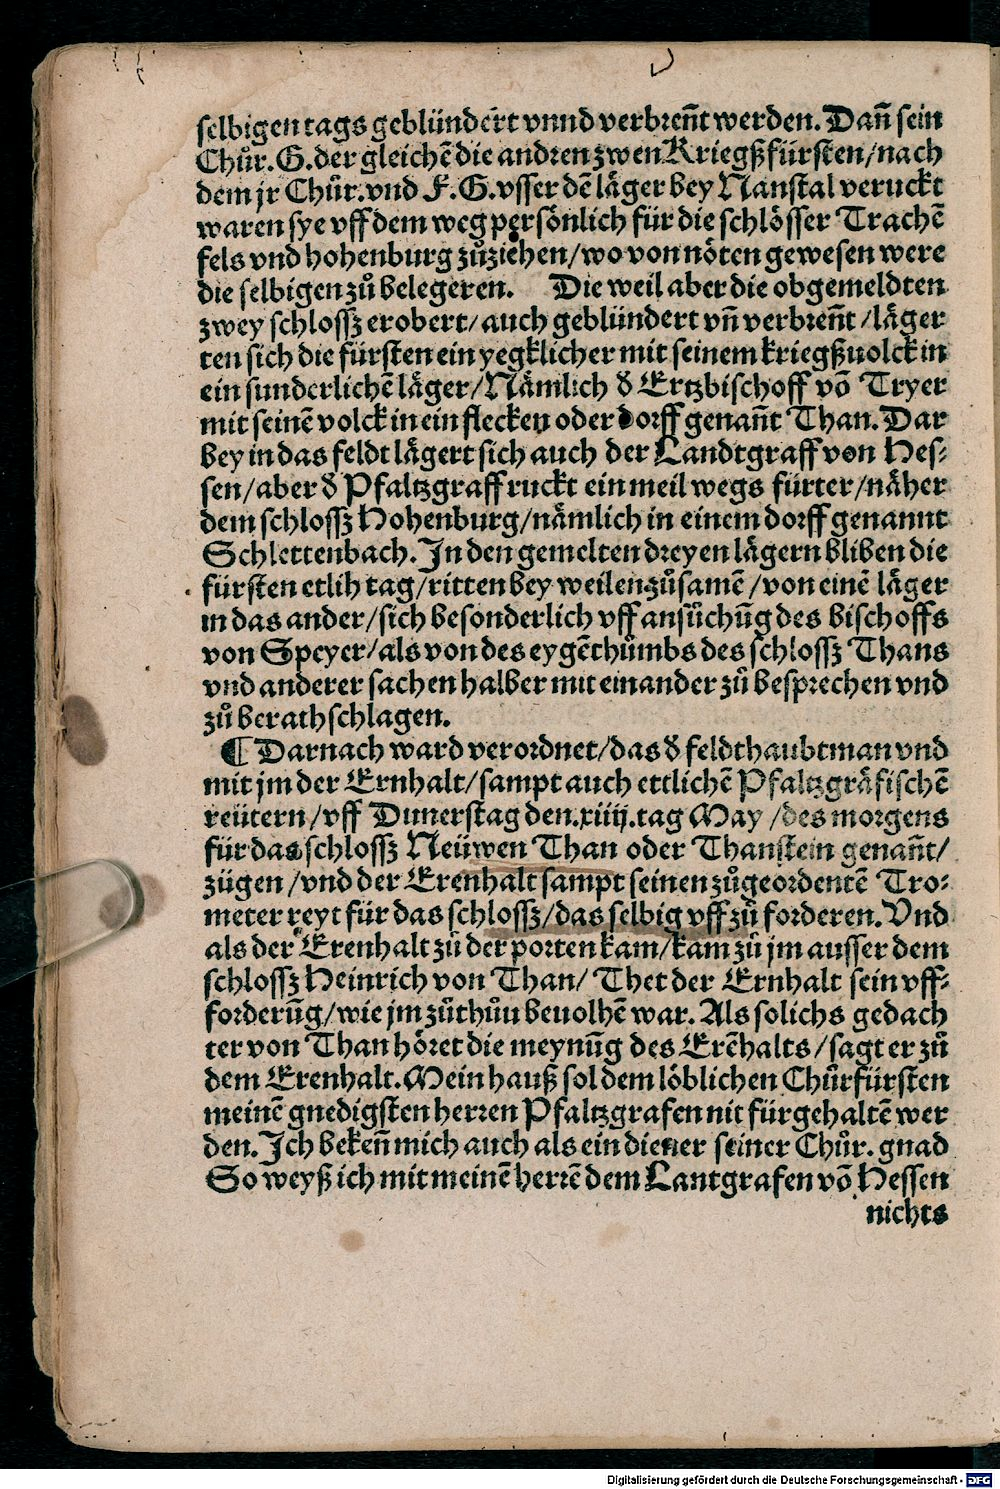 selbigen tags geblündert vnnd verbreñt werden. Dañ sein
Chůr. G. der gleichẽ die andren zwen Kriegßfürsten/nach
dem jr Chůr. vnd F. G. vsser dẽ läger bey Nanstal veruckt
waren sye vff dem weg persönlich für die schlösser Trachẽ
fels vnd hohenburg zůziehen/wo von nöten gewesen were
die selbigen zů belegeren. Die weil aber die obgemeldten
zwey schlossz erobert/auch geblündert vñ verbreñt/läger
ten sich die fürsten ein yegklicher mit seinem kriegßuolck in
ein sunderlichẽ läger/Nämlich đ Ertzbischoff võ Tryer
mit seinẽ volck in ein flecken oder dorff genañt Than. Dar
bey in das feldt lägert sich auch der Landtgraff von Hes⸗
sen/aber đ Pfaltzgraff ruckt ein meil wegs fürter/näher
dem schlossz Hohenburg/nämlich in einem dorff genannt
Schlettenbach. In den gemelten dreyen lägern bliben die
fürsten etlih tag/ritten bey weilen zůsamẽ/von einẽ läger
in das ander/sich besonderlich vff ansůchũg des bischoffs
von Speyer/als von des eygẽthůmbs des schlossz Thans
vnd anderer sachen halber mit einander zů besprechen vnd
zů berathschlagen.
¶ Darnach ward verordnet/das đ feldthaubtman vnd
mit jm der Ernhalt/sampt auch ettlichẽ Pfaltzgräfischẽ
reütern/vff Dunerstag den .xiiij. tag May/des morgens
für das schlossz Neüwen Than oder Thanstein genañt/
zügen/vnd der Erenhalt sampt seinen zůgeordentẽ Tro⸗
meter reyt für das schlossz/das selbig vff zů forderen. Vnd
als der Erenhalt zů der porten kam/kam zů jm ausser dem
schlossz Heinrich von Than/Thet der Ernhalt sein vff⸗
forderũg/wie jm zůthůn beuolhẽ war. Als solichs gedach
ter von Than höret die meynũg des Erẽhalts/sagt er zů
dem Erenhalt. Mein hauß sol dem löblichen Chůrfürsten
meinẽ gnedigsten herren Pfaltzgrafen nit fürgehaltẽ wer
den. Ich bekeñ mich auch als ein diener seiner Chůr. gnad
So weyß ich mit meinẽ herrẽ dem Lantgrafen võ Hessen
nichts
Digitalisierung gefördert durch die Deutsche Forschungsgemeinschaft - DFG